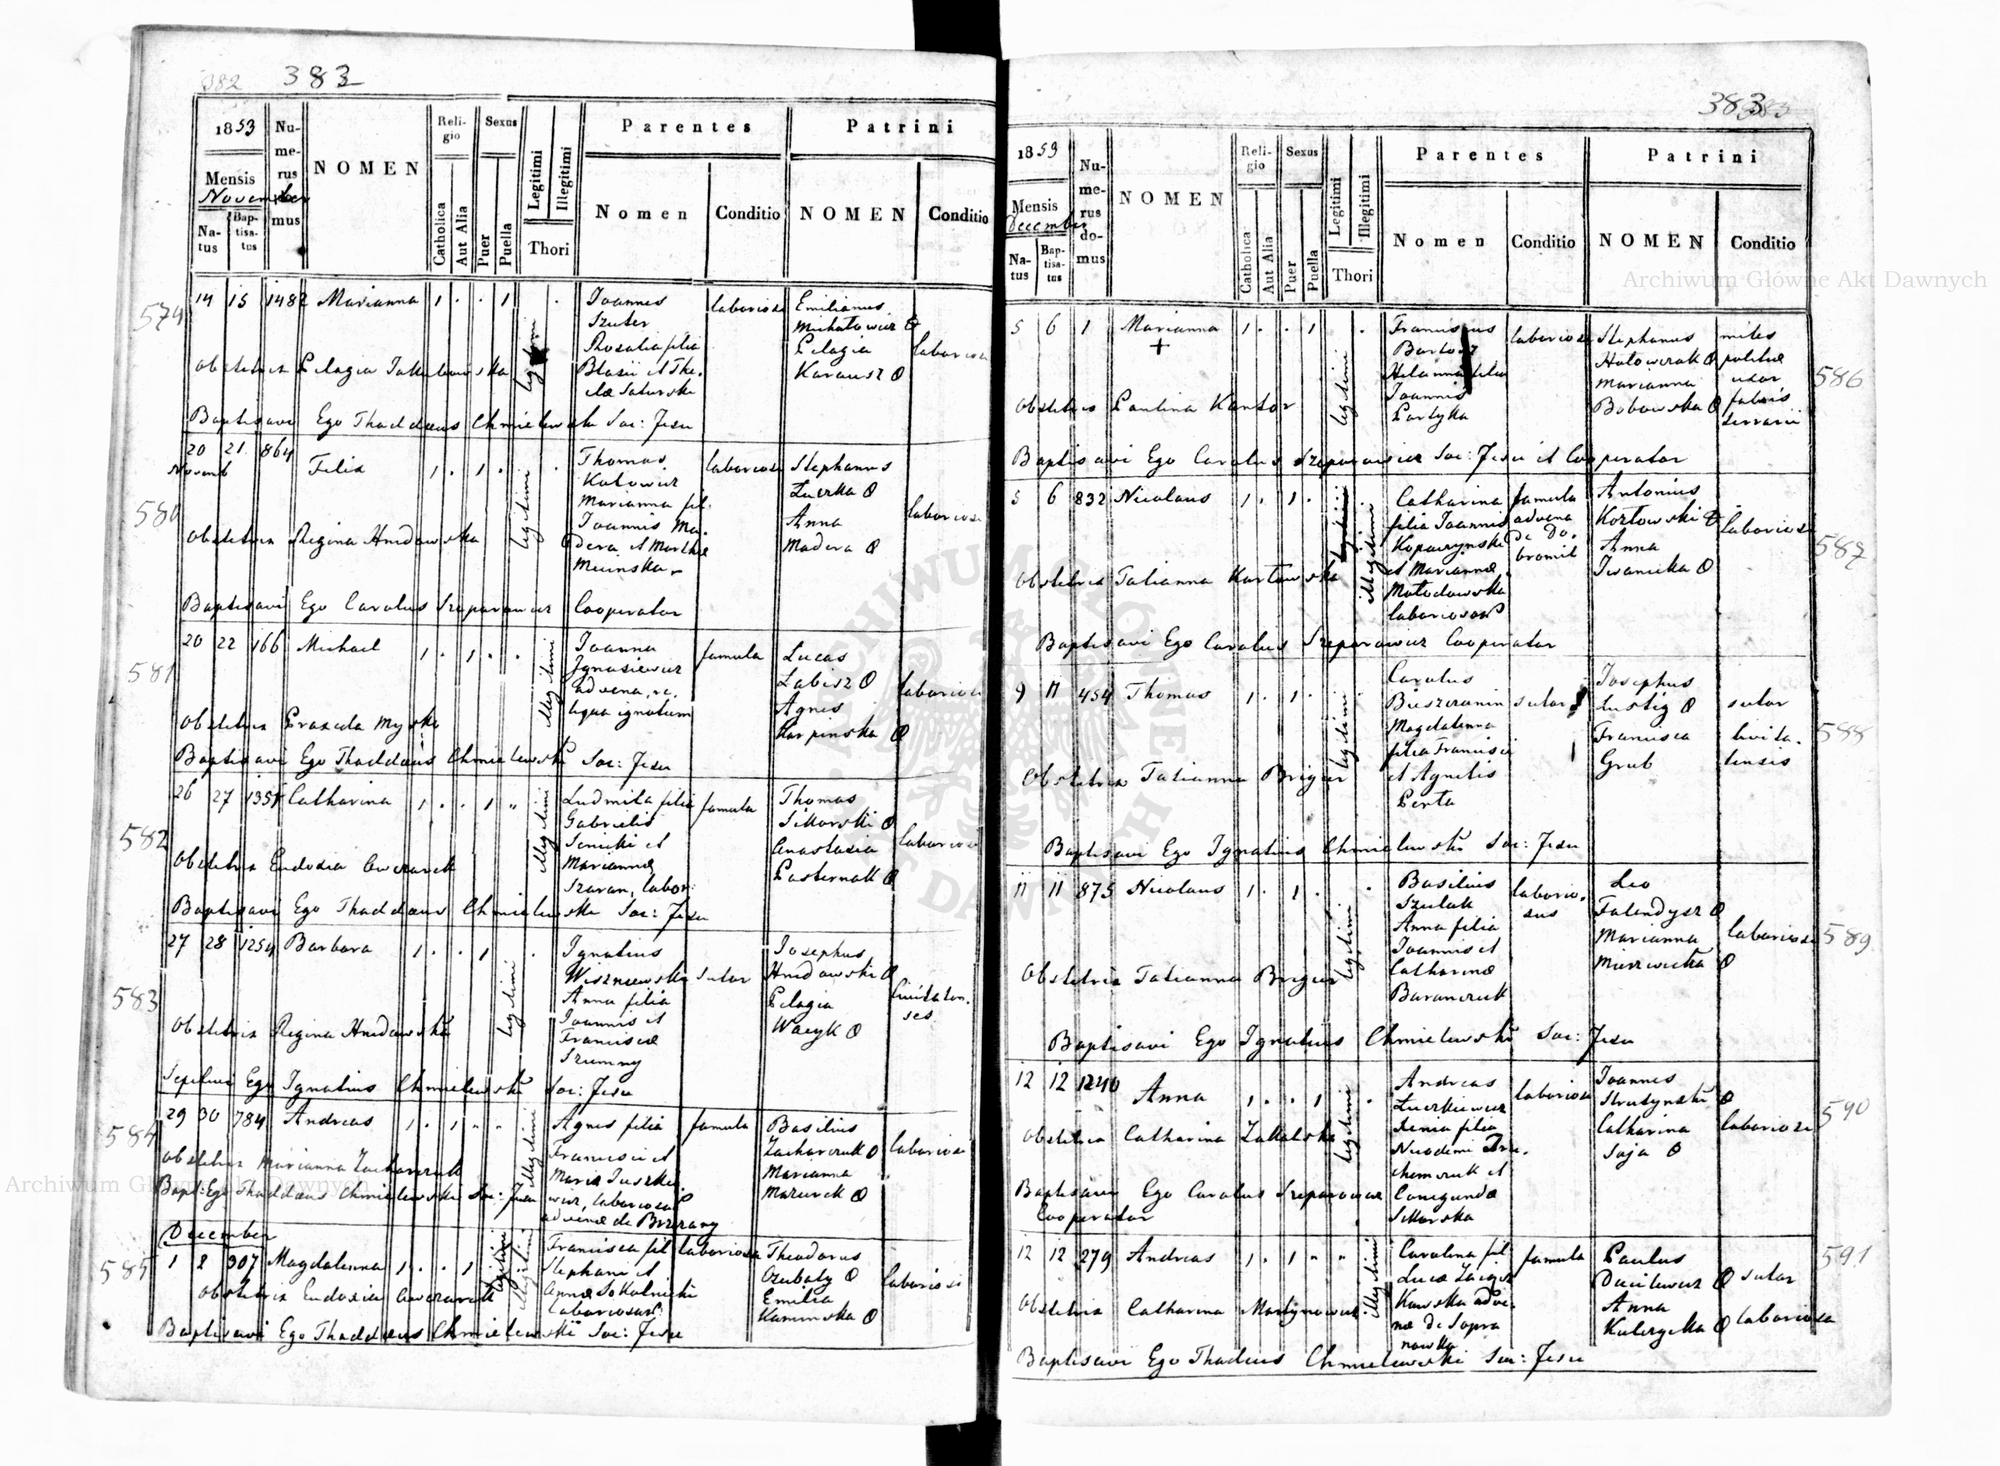 382 383
1853
Mensis
November
Natus
Baptisatus
Numerus domus
NOMEN
Religio
Catholica
Aut Alia
Sexus
Puer
Puella
Legitimi
Illegitimi
Thori
Parentes
Nomen
Conditio
Patrini
NOMEN
Conditio
579
14 15 1482 Marianna 1 . . 1 .
legitimi
Joannes
Szuster
Rosalia filia
Blasii et The-
clæ Saturska
laboriosi
Emilianus
Michałowicz
Pelagia
Karausz
laboriosi
Obstetrix Pelagia
Baptisavi Ego Thaddæus Chmielewski Soc: Jesu
580
20 21 864 Felix 1 . 1 . .
Novemb
legitimi
Thomas
Kotowicz
Marianna fil.
Joannis Ma-
dera et Marthæ
laboriosi
Stephanus
Anna
Madera
laboriosi
Obstetrix Regina Hnidowska
Baptisavi Ego Carolus Szeparowicz Cooperator
581
20 22 166 Michael 1 . 1 . .
illegitimi
Joanna
Ignasiewicz
advena
famula
Lucas
Labisz
Agnes
Karpinska
laboriosi
Obstetrix Praxeda Myska
Baptisavi Ego Thaddæus Chmielewski Soc: Jesu
582
26 27 1351 Catharina 1 . . 1 "
illegitimi
Ludmila filia
Gabrielis
Senicki et
Mariannæ
Szaran, labor:
famula
Thomas
Sikorski
Anastasia
Pasternak
laboriosi
Obstetrix Eudoxia Owczarek
Baptisavi Ego Thaddæus Chmielewski Soc: Jesu
583
27 28 1254 Barbara 1 . . 1 .
legitimi
Ignatius
Wiszniewski
Anna filia
Joannis et
Franciscæ
Szumny
sutor
Josephus
Hnidowski
Pelagia
Wacyk
Civitaten-
ses
Obstetrix Regina Hnidowska
Ego Ignatius Chmielewski Soc: Jesu
584
29 30 784 Andreas 1 . 1 " "
illegitimi
Agnes filia
Francisci et
laboriosa
advenæ de Brzezany
famula
Basilius
Zacharczuk
Marianna
Mazurek
laboriosi
Obstetrix Marianna Zacharczuk
Bapt: Ego Thaddæus Chmielewski Soc: Jesu
December
585
1 2 307 Magdalenna 1 . . 1
illegitimi
Francisca fil
Stephani et
Annæ Sokolnicki
laboriosa
Theodorus
Emilia
Kaminska
laboriosi
Obstetrix Eudoxia Owczarek
Baptisavi Ego Thaddæus Chmielewski Soc: Jesu
383
1853
Mensis
December
Natus
Baptisatus
Numerus domus
NOMEN
Religio
Catholica
Aut Alia
Sexus
Puer
Puella
Legitimi
Illegitimi
Thori
Parentes
Nomen
Conditio
Patrini
NOMEN
Conditio
586
5 6 1 Marianna 1 . . 1 .
+
legitimi
Franciscus
Bartosz
filia
Joannis
Partyka
laboriosi
Stephanus
Marianna
Bobowska
miles
politiæ
uxor
fabris
ferrarii
Obstetrix Paulina Kantor
Baptisavi Ego Carolus Szeparowicz Soc: Jesu et Cooperator
587
5 6 832 Nicolaus 1 . 1 .
illegitimi
Catharina
filia Joannis
Kopaczynski
et Mariannæ
Mołodowska
laboriosor
famula
advena
de Do-
bromil
Antonius
Kozłowski
Anna
Iwanicka
laboriosi
Obstetrix Tatianna
Baptisavi Ego Carolus Szeparowicz Cooperator
588
9 11 454 Thomas 1 . 1 .
legitimi
Carolus
Magdalenna
filia Francisci
et Agnetis
Perta
sutor
Josephus
Lustig
Francisca
Grub
sutor
Civita-
tensis
Obstetrix Tatianna Briger
Baptisavi Ego Ignatius Chmielewski Soc: Jesu
589
11 11 875 Nicolaus 1 . 1 .
legitimi
Basilius
Szulak
Anna filia
Joannis et
Catharinæ
Baranczuk
laborio-
sus
Leo
Falendysz
Marianna
laboriosi
Obstetrix Tatianna Briger
Baptisavi Ego Ignatius Chmielewski Soc: Jesu
590
12 12 1240 Anna 1 . . 1 .
legitimi
Andreas
Xenia filia
Nicodemi
et
Conegundæ
Sikorska
laboriosi
Joannes
Catharina
Soja
laboriosi
Obstetrix Catharina Zakalska
Baptisavi Ego Carolus Szeparowicz
Cooperator
591
12 12 279 Andreas 1 . 1 " "
illegitimi
Carolina fil
Lucæ
advenæ
de
famula
Paulus
Danilewicz
Anna
sutor
laboriosa
Obstetrix Catharina Martynowicz
Baptisavi Ego Thadeus Chmielewski Soc: Jesu
Archiwum Główne Akt Dawnych
Archiwum Główne Akt Dawnych
ARCHIWUM GŁÓWNE AKT DAWNYCH